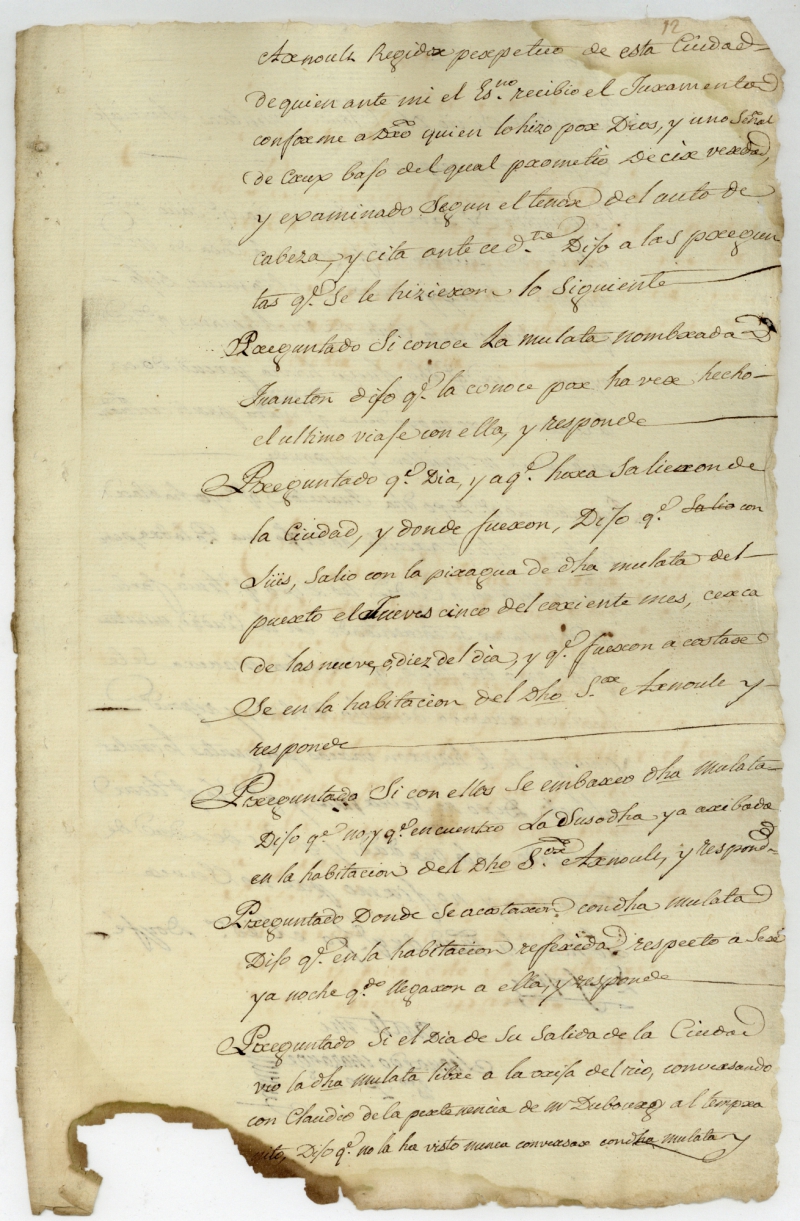 12
Arnoult Regidor perpetuo de esta Ciudad
de quien ante mi el Es.no recibio el Juramento
conforme a Dro quien lo hizo por Dios, y uno Señal
de Crux bajo del qual prometio decir verdad,
y examinado Segun el tenor del auto de
cabeza, y cita anteced.te Dijo a las pregun
tas q.e Se le hizieron lo Siguiente
Preguntado Si conoce La mulata nombrada
Juaneton dijo q.e la conoce por haver hecho
el ultimo viaje con ella, y responde
Preguntado q.e Dia, y a q.e hora Salieron de
la Ciudad, y donde fueron, Dijo q.e Salio con
Luis, Salio con la piragua de dha mulata del
puerto el Jueves cinco del coriente mes, cerca
de las nueve, o diez del dia, y q.e fueron a costar
Se en la habitacion del Dho S.or Arnoult y
responde
Preguntado Si con ellos Se embarco dha mulata
Dijo q.e no, y q.e encuentro La Susodha ya aribada
en la habitacion del Dho S.or Arnoult, y respond.e
Preguntado Donde Se acostaron con dha mulata
Dijo q.e en la habitacion referida respecto a Ser
ya noche q.do llegaron a ella, y responde
Preguntado Si el Dia de Su Salida de la Ciudad
vio la dha mulata libre a la orija del rio, conversando
con Claudio de la pertenencia de Mr Dubourg al tempra
nito, Dijo q.e no la ha visto nunca conversar con dha mulata y